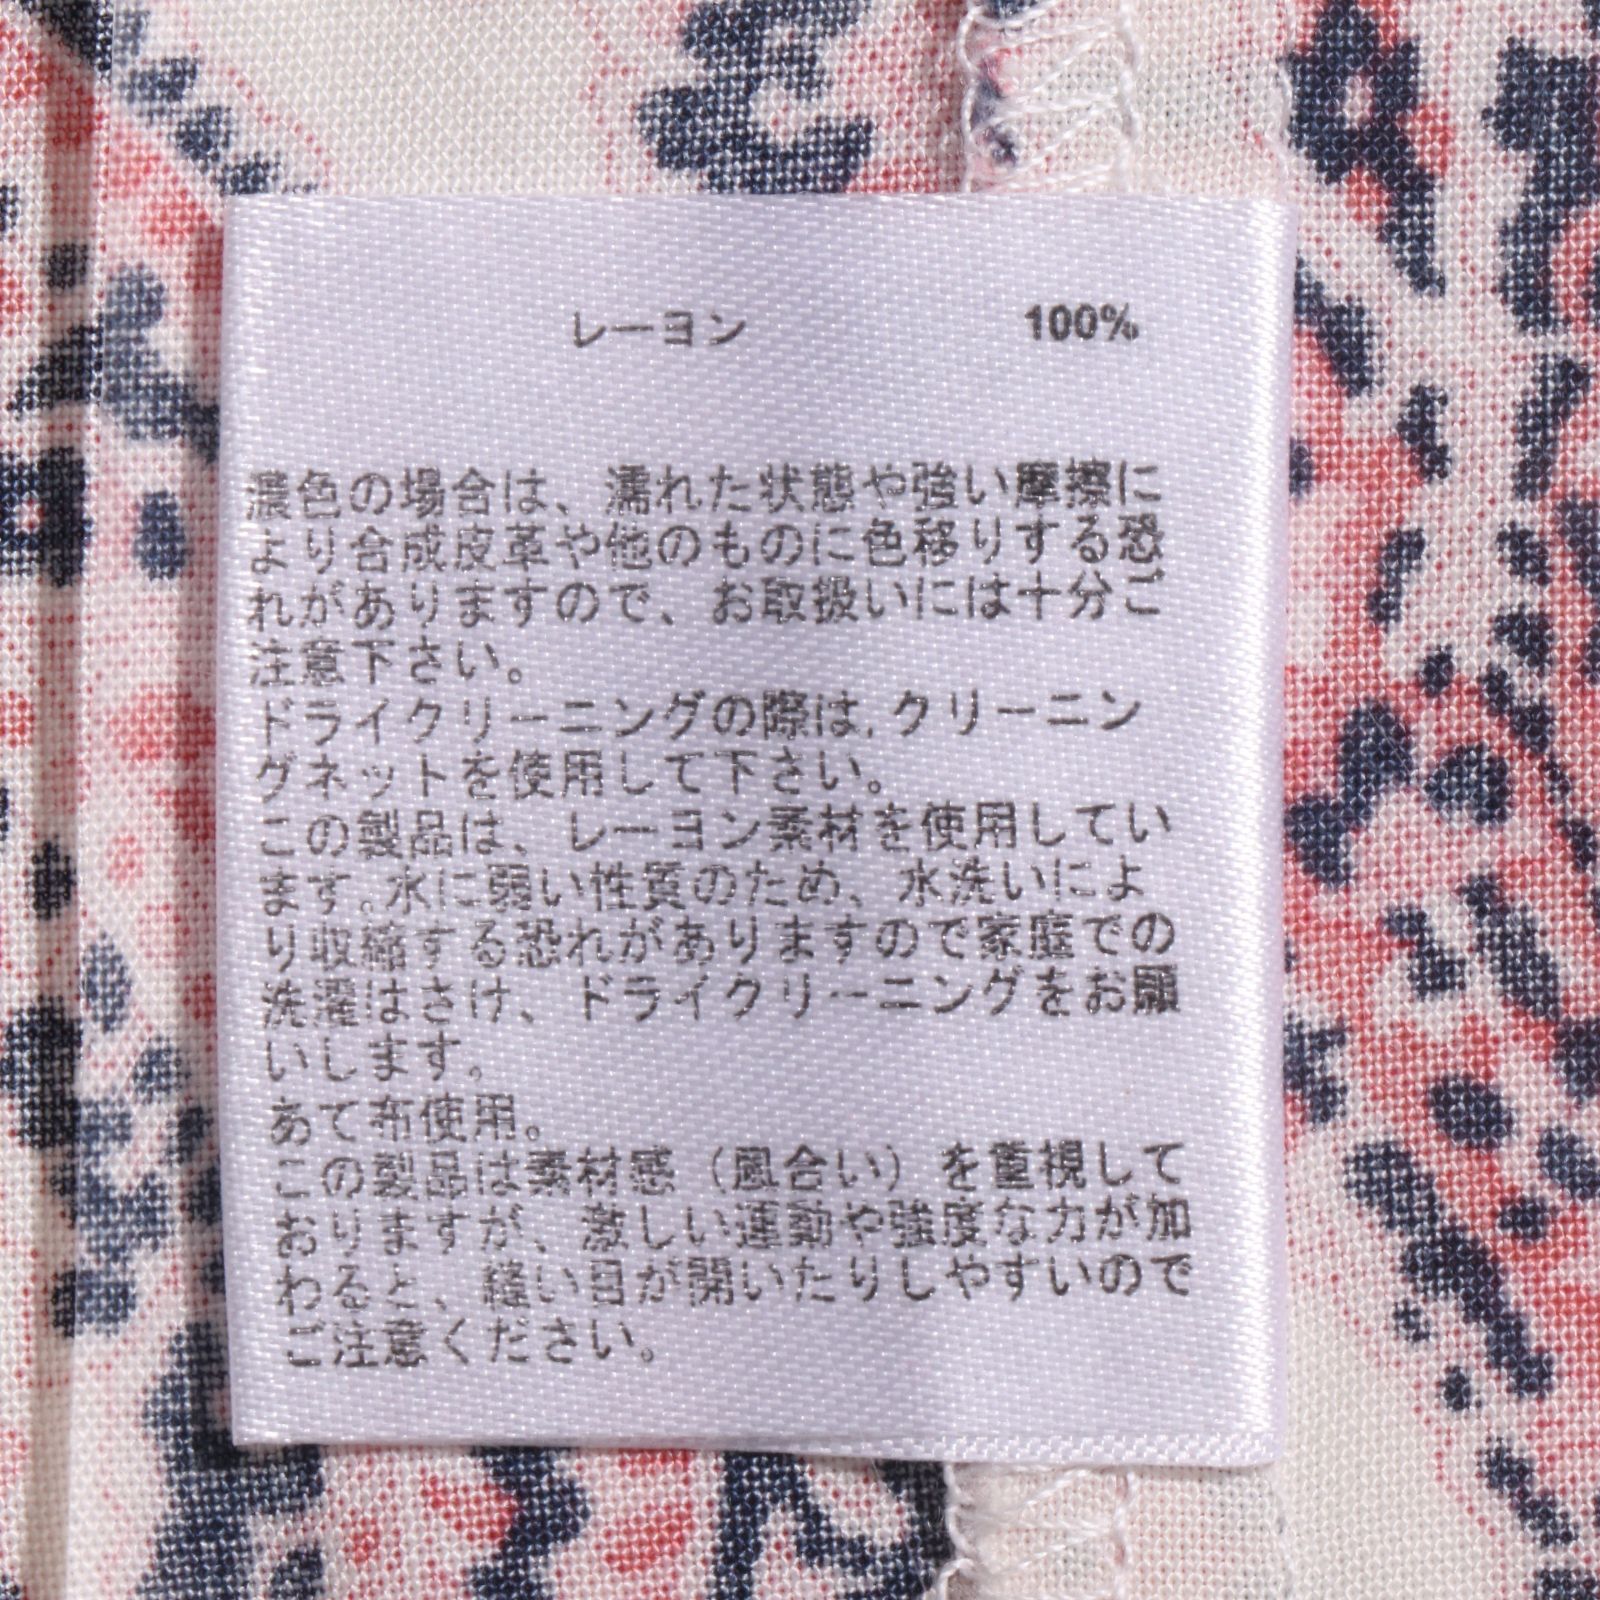 レーヨン 100%
濃色の場合は、濡れた状態や強い摩擦に
より合成皮革や他のものに色移りする恐
れがありますので、お取扱いには十分ご
注意下さい。
ドライクリーニングの際は,クリーニン
グネットを使用して下さい。
この製品は、レーヨン素材を使用してい
ます。水に弱い性質のため、水洗いによ
り収縮する恐れがありますので家庭での
洗濯はさけ、ドライクリーニングをお願
いします。
あて布使用。
この製品は素材感（風合い）を重視して
おりますが、激しい運動や強度な力が加
わると、縫い目が開いたりしやすいので
ご注意ください。